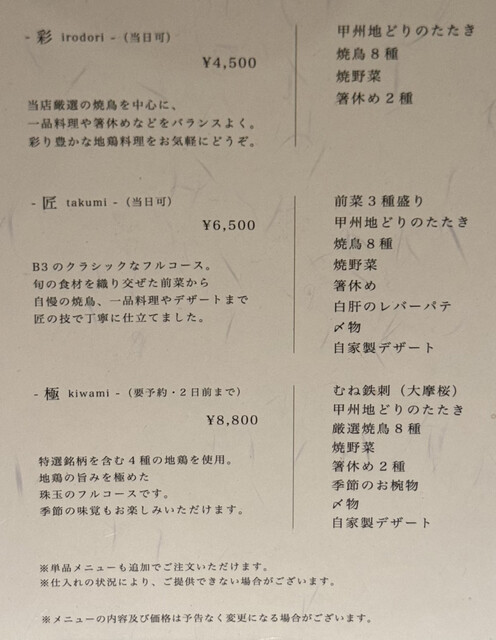 - 彩 irodori -（当日可）
¥4,500
当店厳選の焼鳥を中心に、
一品料理や箸休めなどをバランスよく。
彩り豊かな地鶏料理をお気軽にどうぞ。
甲州地どりのたたき
焼鳥８種
焼野菜
箸休め２種
- 匠 takumi -（当日可）
¥6,500
B3のクラシックなフルコース。
旬の食材を織り交ぜた前菜から
自慢の焼鳥、一品料理やデザートまで
匠の技で丁寧に仕立てました。
前菜３種盛り
甲州地どりのたたき
焼鳥８種
焼野菜
箸休め
白肝のレバーパテ
〆物
自家製デザート
- 極 kiwami -（要予約・２日前まで）
¥8,800
特選銘柄を含む４種の地鶏を使用。
地鶏の旨みを極めた
珠玉のフルコースです。
季節の味覚もお楽しみいただけます。
むね鉄刺（大摩桜）
甲州地どりのたたき
厳選焼鳥８種
焼野菜
箸休め２種
季節のお椀物
〆物
自家製デザート
※単品メニューも追加でご注文いただけます。
※仕入れの状況により、ご提供できない場合がございます。
※メニューの内容及び価格は予告なく変更になる場合がございます。